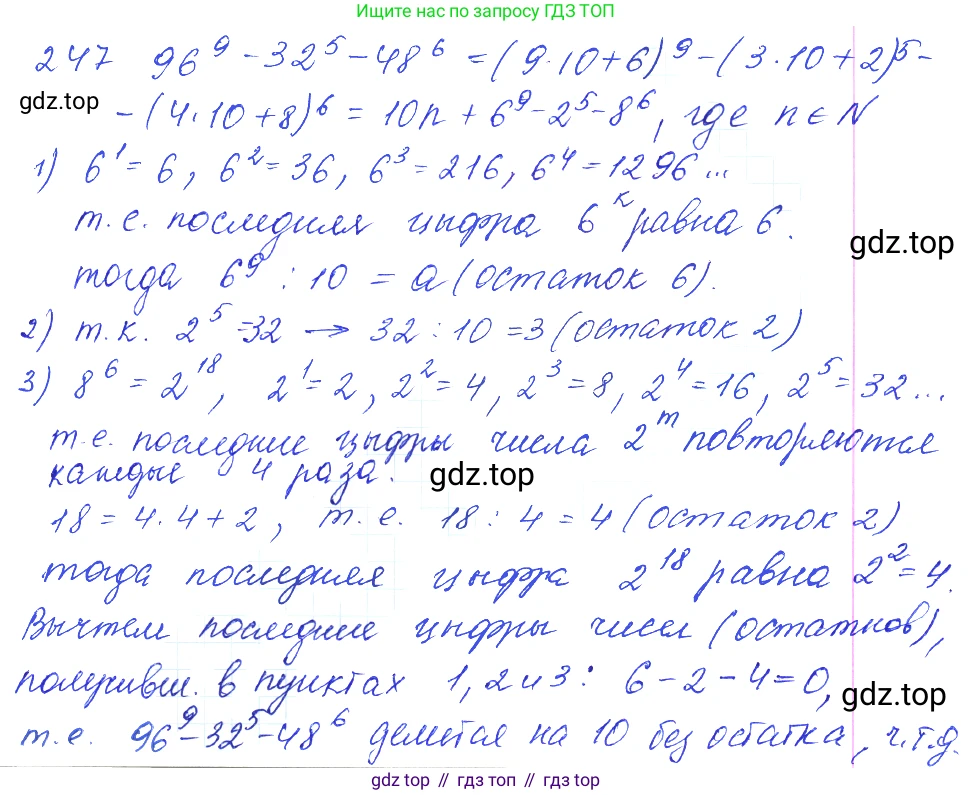 Ищите нас по запросу ГДЗ ТОП
247 96⁹ - 32⁵ - 48⁶ = (9·10+6)⁹ - (3·10+2)⁵ -
gdz.top
- (4·10+8)⁶ = 10n + 6⁹ - 2⁵ - 8⁶, где n ∈ N
1) 6¹ = 6, 6² = 36, 6³ = 216, 6⁴ = 1296...
т.е. последняя цыфра 6ᵏ равна 6.
gdz.top
тогда 6⁹ : 10 = a (остаток 6).
2) т.к. 2⁵ = 32 → 32 : 10 = 3 (остаток 2)
3) 8⁶ = 2¹⁸, 2¹ = 2, 2² = 4, 2³ = 8, 2⁴ = 16, 2⁵ = 32...
т.е. последние цыфры числа 2ᵐ повторяются
каждые 4 раза.
gdz.top
18 = 4·4+2, т.е. 18 : 4 = 4 (остаток 2)
тогда последняя цыфра 2¹⁸ равна 2² = 4.
Вычтем последние цыфры чисел (остатков),
получивш. в пунктах 1, 2 и 3: 6 - 2 - 4 = 0,
gdz.top
т.е. 96⁹ - 32⁵ - 48⁶ делится на 10 без остатка, ч.т.д.
gdz.top // гдз топ // gdz top